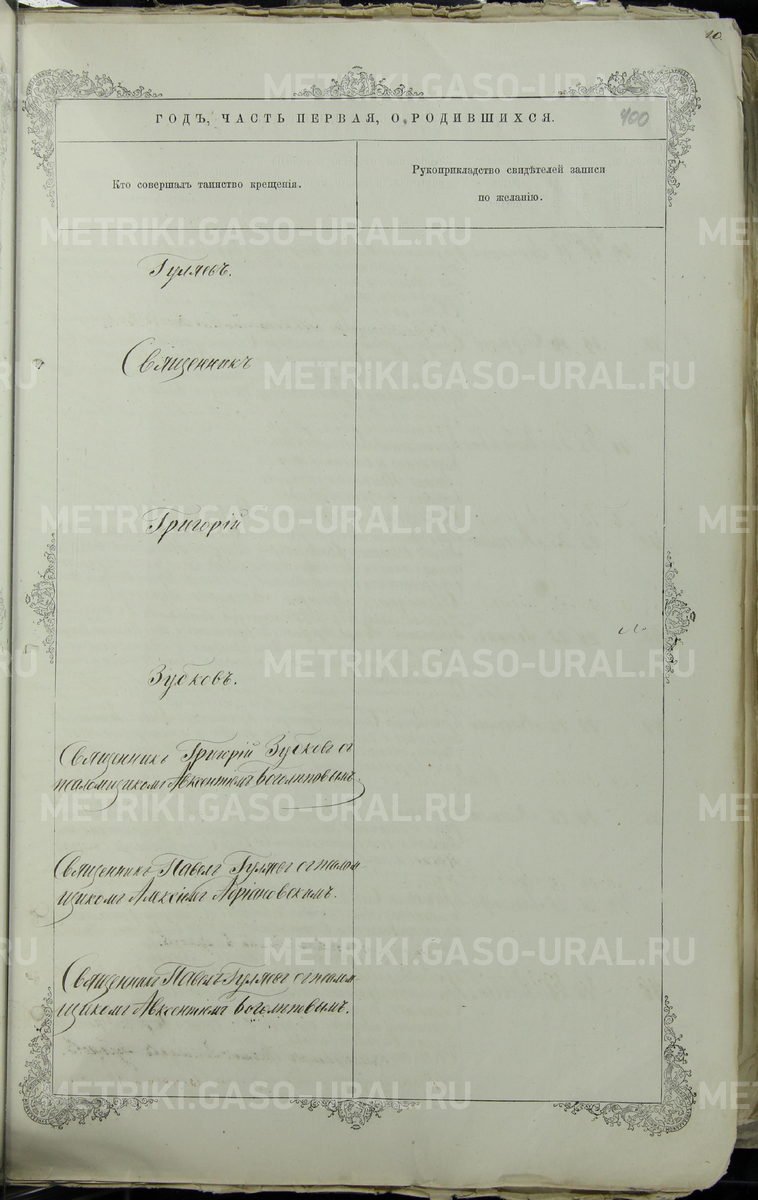 10.
ГОДЪ, ЧАСТЬ ПЕРВАЯ, О РОДИВШИХСЯ.
400
Кто совершалъ таинство крещенія.
Рукоприкладство свидѣтелей записи
по желанію.
Гуляевъ.
Священникъ
Григорій
Зубковъ.
Священникъ Григорій Зубковъ съ
псаломщикомъ Авксентіемъ Боголѣповымъ.
Священникъ Павелъ Гуляевъ съ псалом
щикомъ Алексіемъ
Священникъ Павелъ Гуляевъ съ псалом
щикомъ Авксентіемъ Боголѣповымъ.
METRIKI.GASO-URAL.RU